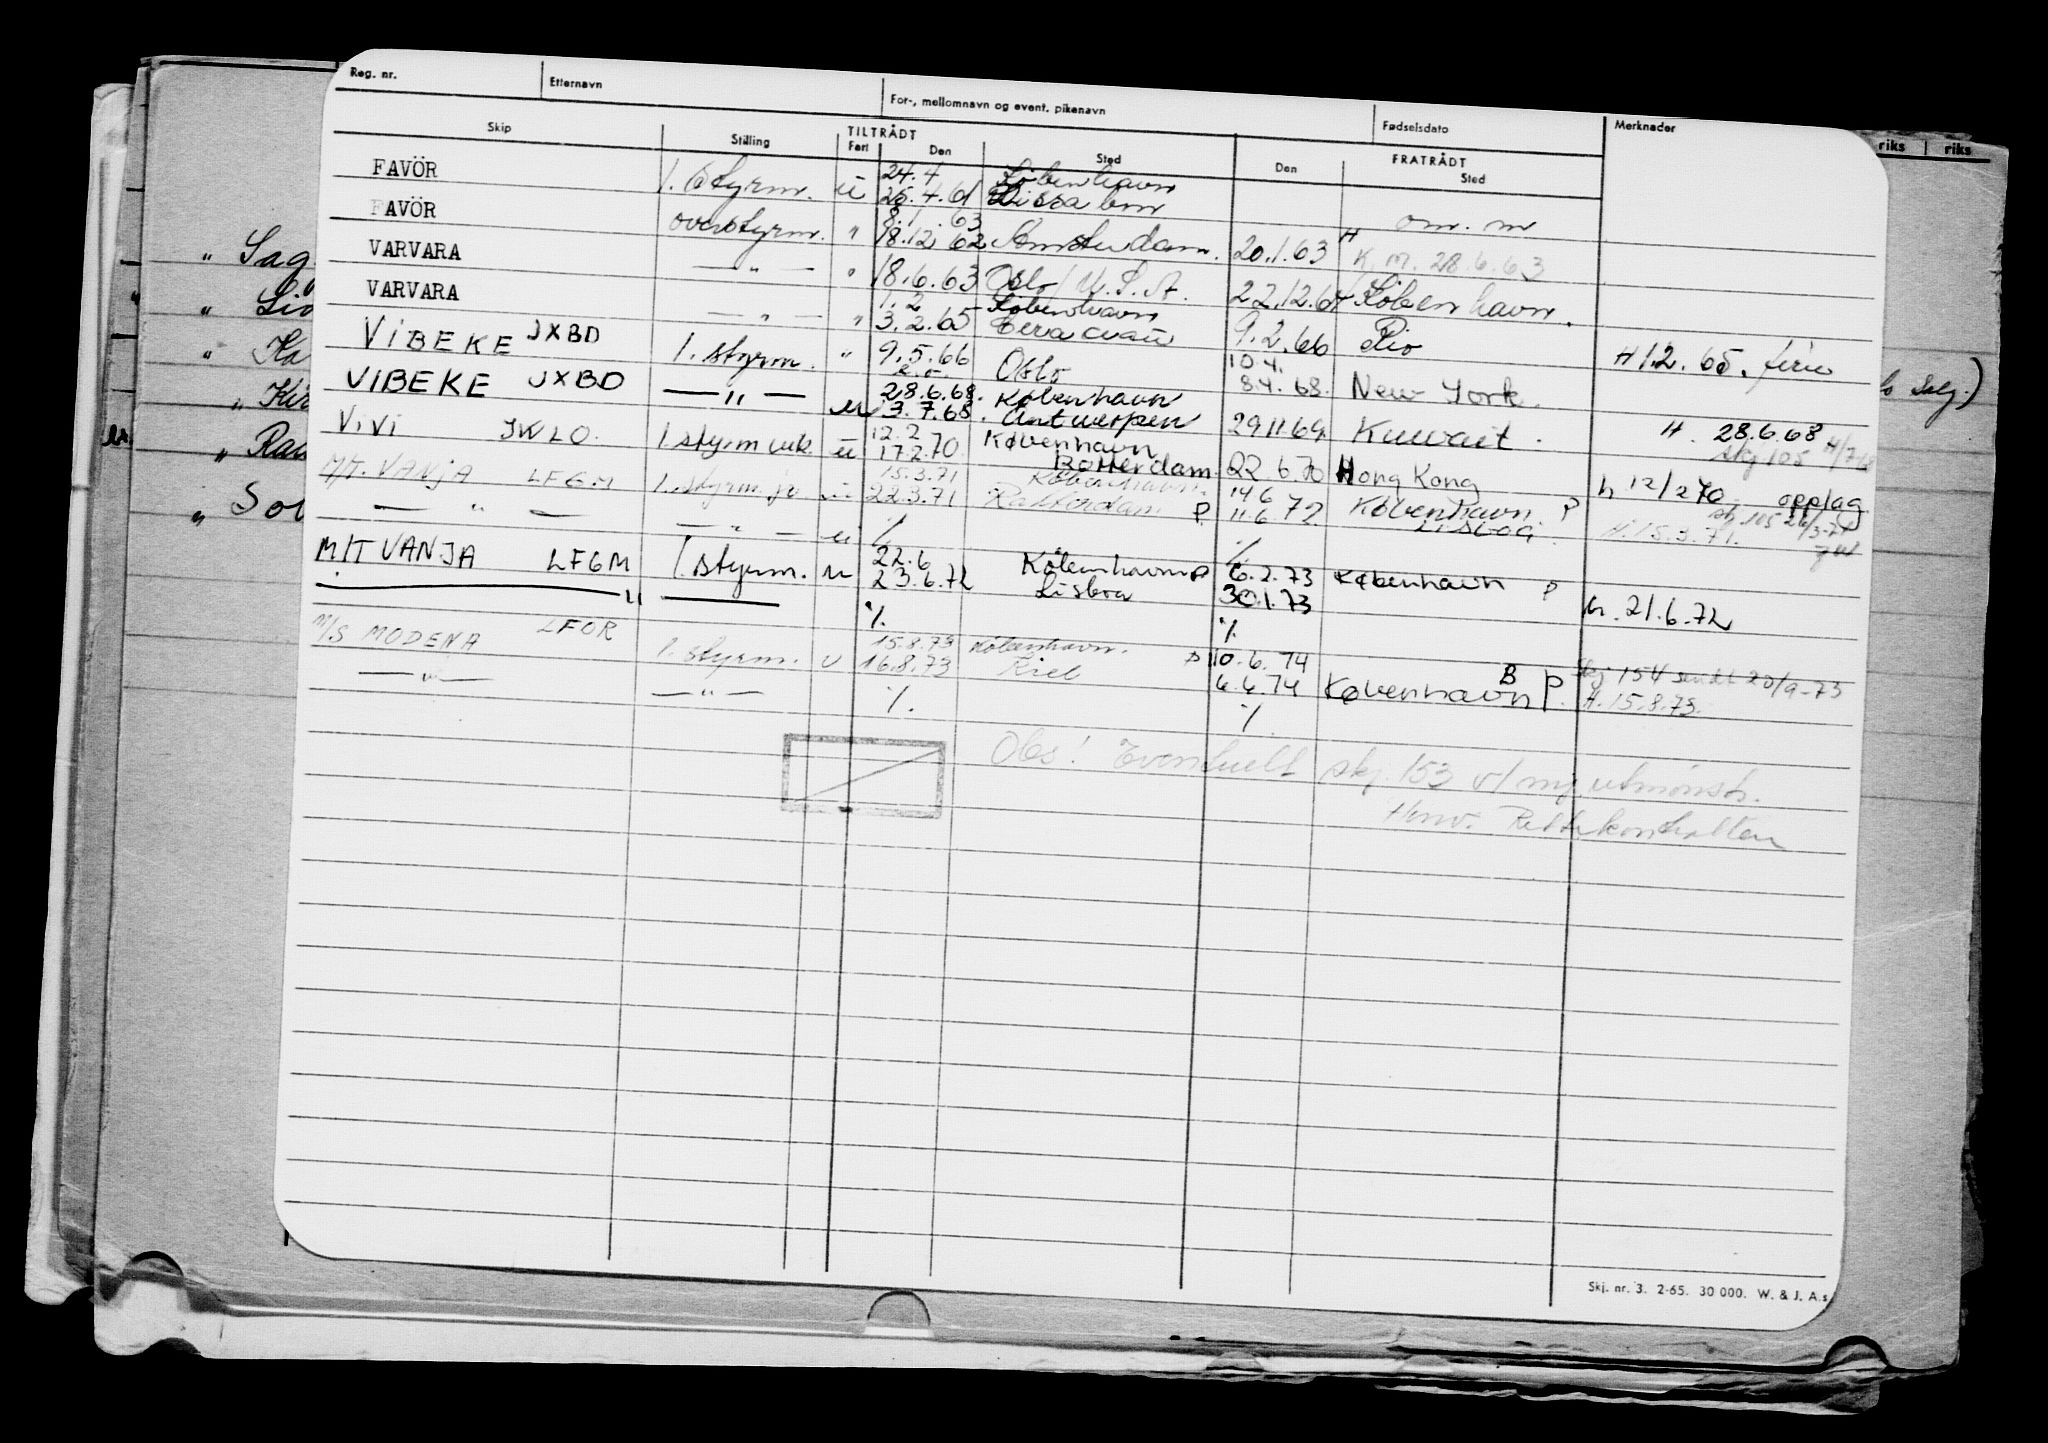 Reg. nr. Etternavn For-, mellomnavn og event. pikenavn Fødselsdato Merknader riks riks
Skip Stilling TILTRÅDT FRATRÅDT
Fart Den Sted Den Sted
24.4 København
FAVÖR 1. Styrm. u 25.4.61 Lissabon
8.1.63 om. m
FAVÖR overstyrm. " 18.12 62 Amsterdam. 20.1.63 H K.m. 28.6.63
VARVARA — " — " 18.6.63 Oslo / U.S.A. 22.12.64 København.
1.2 København
VARVARA — " — " 3.2.65 9.2.66 Rio H 1.2. 65. ferie
VIBEKE JXBD 1. styrm. " 9.5.66 Oslo 10.4. 8.4. 68. New York.
28.6.68. København
VIBEKE JXBD — " — u 3.7.68. Antwerpen 29.11.69. Kuwait. H. 28.6.68 skj 105
12.2 København
ViVi JWLO. 1 styrm vik. u 17.2.70 Rotterdam. 22 6.70 Hong Kong h 12/2 70 opplag
15.3.71 København 14 6
M/T. VANJA LFGM 1. styrm. jr u 22.3.71 Rotterdam P 11.6.72 København P Lisboa. H. 15.3.71. skj 105 26/3-71
— " — — " — u % %
22.6 København P 6.2.73 København P
M/T VANJA LFGM 1 styrm. u 23.6.72 Lisboa 30.1.73 h. 21.6.72
— " — — % %
15.8.73 København. P 10.6.74
M/S MODENA LFOR 1. styrm. u 16.8.73 Kiel 6.6.74 København B P. Skj 154 sendt 20/9-73 H. 15.8.73.
— " — — " — %. %.
Obs! Eventuelt skj. 153 v/ my utmönstr.
Henv. Rettskontrollen
" Sag
" Lio
" Ka
" Kir
u. " Ran
" Sol
Salg.)
Skj. nr. 3. 2-65. 30 000. W. & J. A.s